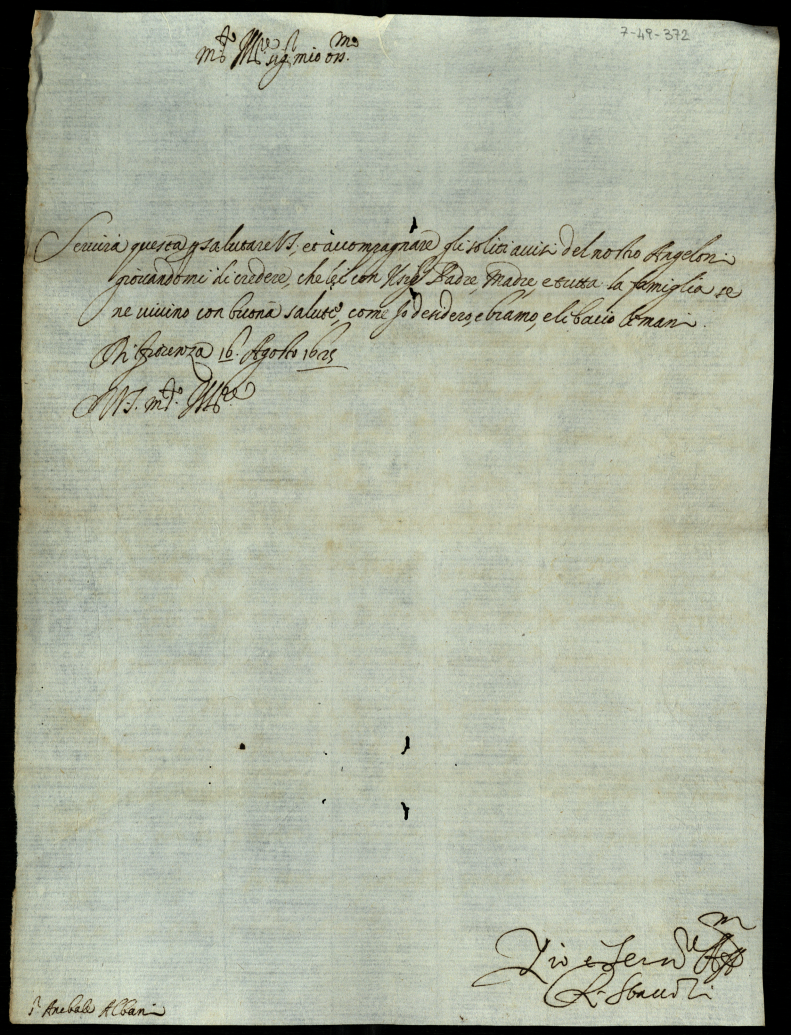 7-49-372
m.to Ill.re sig.r mio oss.mo
Servirà questa p salutare VS. et accompagnare gli soliti avvisi del nostro Angeloni
giovandomi di credere, che lei con il sig.r Padre, Madre, e tutta la famiglia se
ne vivino con buona salute, come io desidero, e bramo, e le bacio le mani.
Di Fiorenza 16. Agosto 1625
D VS. m.to Ill.re
Zio e Ser.re Aff.m
S.r Anibale Albani